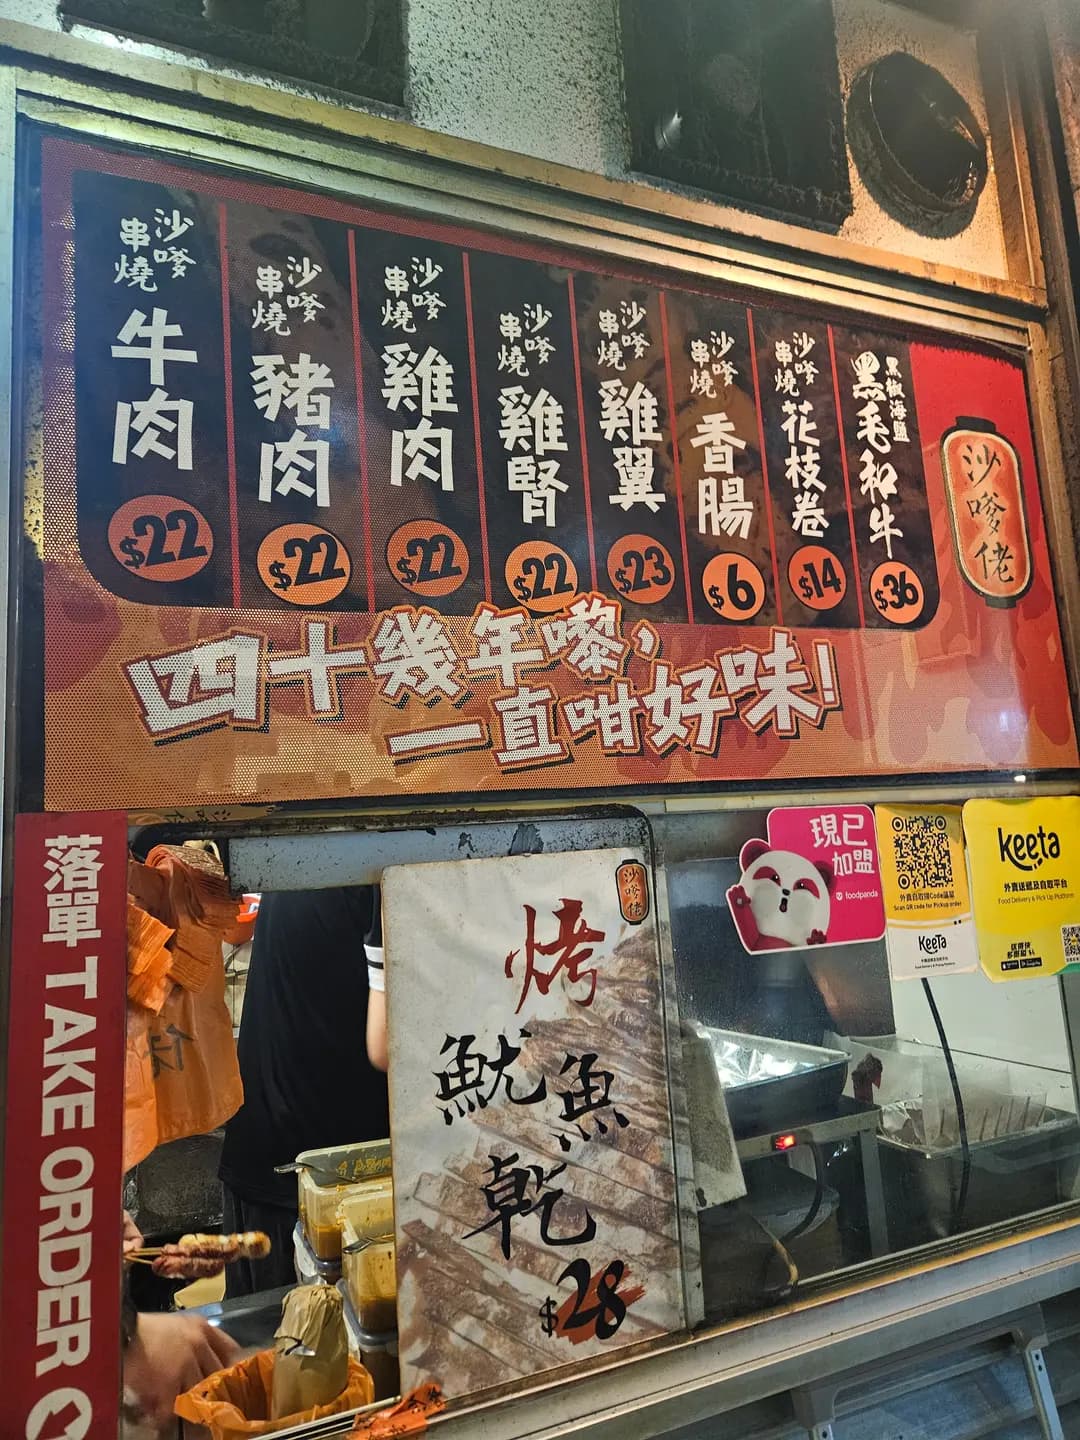 沙嗲串燒
牛肉
$22
沙嗲串燒
豬肉
$22
沙嗲串燒
雞肉
$22
沙嗲串燒
雞腎
$22
沙嗲串燒
雞翼
$23
沙嗲串燒
香腸
$6
沙嗲串燒
花枝卷
$14
黑椒海鹽
黑毛和牛
$36
沙嗲佬
四十幾年嚟，
一直咁好味！
落單 TAKE ORDER
沙嗲佬
烤
魷魚
乾
$28
現已
加盟
foodpanda
外賣自取掃Code區
Scan QR code for Pickup order
KeeTa
Keeta
外賣速遞及自取平台
Food Delivery & Pick Up Platform